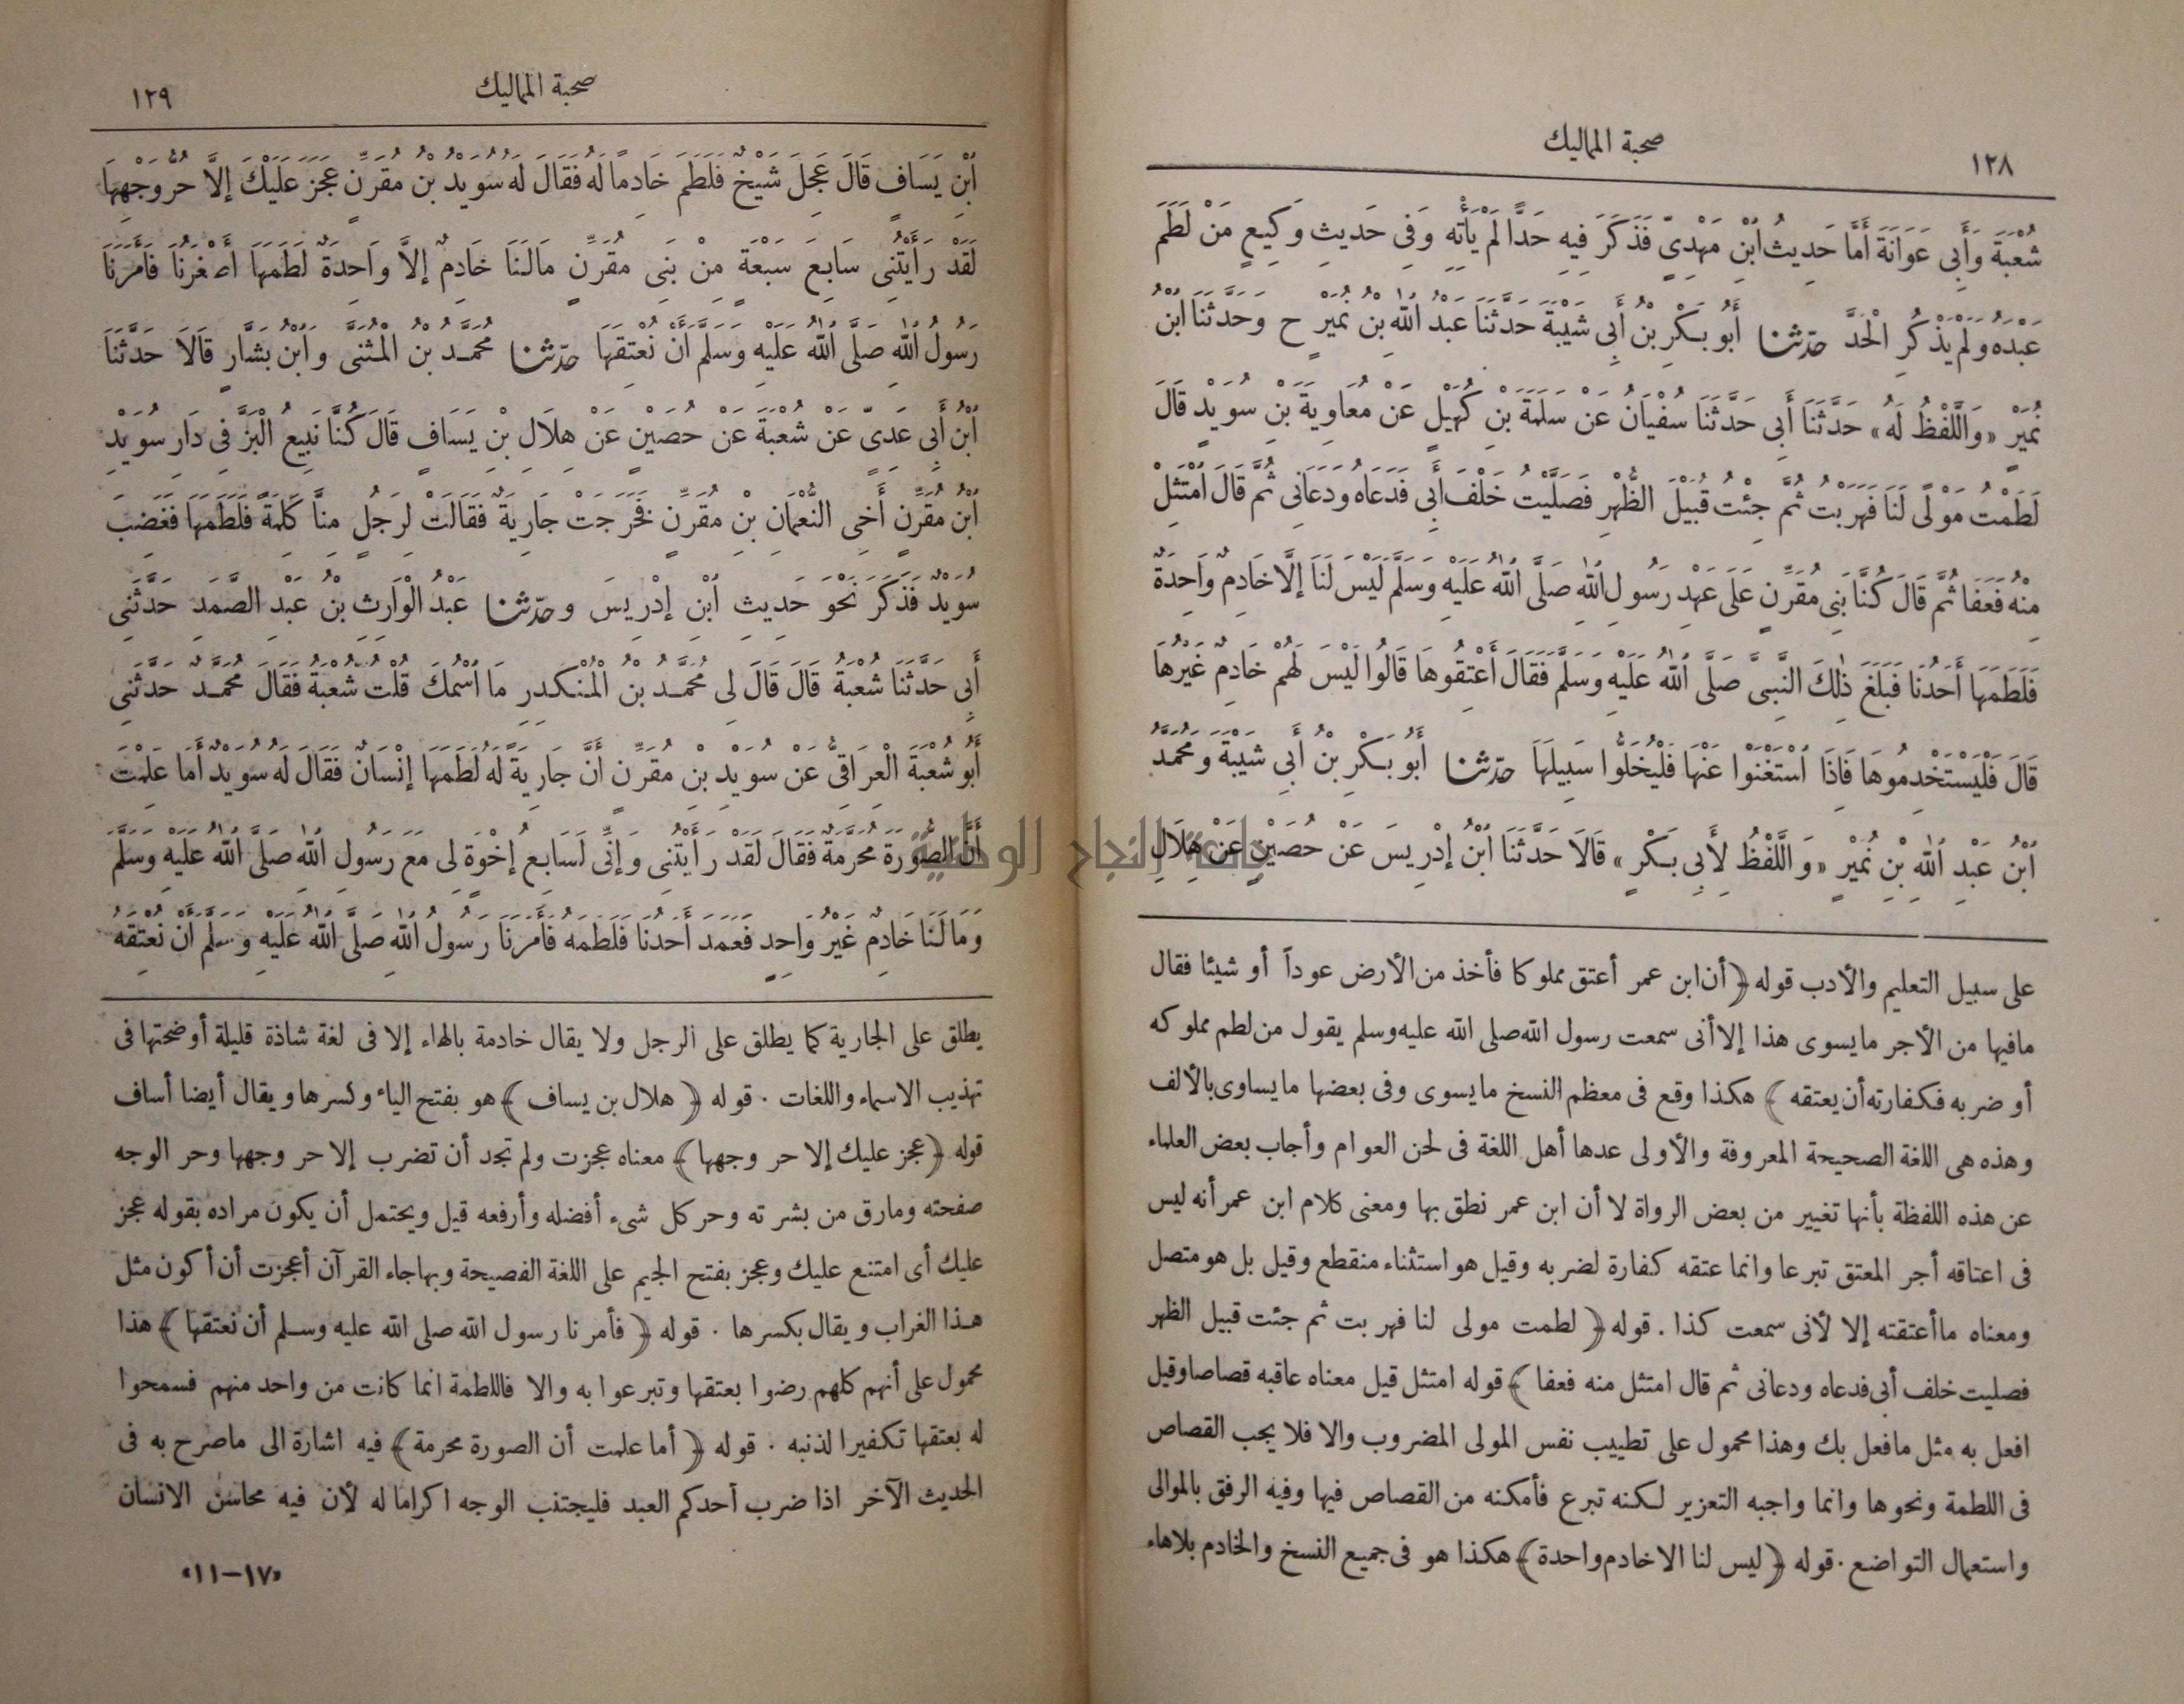 ١٢٨
صحبة المماليك
شُعْبَةَ وَأَبِى عَوَانَةَ أَمَّا حَدِيثُ ٱبْنِ مَهْدِىٍّ فَذَكَرَ فِيهِ حَدًّا لَمْ يَأْتِهِ وَفِى حَدِيثِ وَكِيعٍ مَنْ لَطَمَ
عَبْدَهُ وَلَمْ يَذْكُرِ الْحَدَّ حَدّثنا أَبُو بَكْرِ بْنُ أَبِى شَيْبَةَ حَدَّثَنَا عَبْدُ اللهِ بْنُ نُمَيْرٍ ح وَحَدَّثَنَا ٱبْنُ
نُمَيْرٍ «وَاللَّفْظُ لَهُ» حَدَّثَنَا أَبِى حَدَّثَنَا سُفْيَانُ عَنْ سَلَمَةَ بْنِ كُهَيْلٍ عَنْ مُعَاوِيَةَ بْنِ سُوَيْدٍ قَالَ
لَطَمْتُ مَوْلًى لَنَا فَهَرَبْتُ ثُمَّ جِئْتُ قُبَيْلَ الظُّهْرِ فَصَلَّيْتُ خَلْفَ أَبِى فَدَعَاهُ وَدَعَانِى ثُمَّ قَالَ ٱمْتَثِلْ
مِنْهُ فَعَفَا ثُمَّ قَالَ كُنَّا بَنِى مُقَرِّنٍ عَلَى عَهْدِ رَسُولِ اللهِ صَلَّى اللهُ عَلَيْهِ وَسَلَّمَ لَيْسَ لَنَا إِلَّا خَادِمٌ وَاحِدَةٌ
فَلَطَمَهَا أَحَدُنَا فَبَلَغَ ذٰلِكَ النَّبِىَّ صَلَّى اللهُ عَلَيْهِ وَسَلَّمَ فَقَالَ أَعْتِقُوهَا قَالُوا لَيْسَ لَهُمْ خَادِمٌ غَيْرُهَا
قَالَ فَلْيَسْتَخْدِمُوهَا فَاذَا ٱسْتَغْنَوْا عَنْهَا فَلْيُخَلُّوا سَبِيلَهَا حدّثنا أَبُو بَكْرِ بْنُ أَبِى شَيْبَةَ وَمُحَمَّدُ
ٱبْنُ عَبْدِ اللهِ بْنِ نُمَيْرٍ «وَاللَّفْظُ لِأَبِى بَكْرٍ» قَالَا حَدَّثَنَا ٱبْنُ إِدْرِيسَ عَنْ حُصَيْنٍ عَنْ هِلَالِ
على سبيل التعليم والأدب قوله ﴿أن ابن عمر أعتق مملوكا فأخذ من الأرض عوداً أو شيئا فقال
مافيها من الأجر مايسوى هذا إلا أنى سمعت رسول الله صلى الله عليه وسلم يقول من لطم مملوكه
أو ضربه فكفارته أن يعتقه﴾ هكذا وقع فى معظم النسخ مايسوى وفى بعضها مايساوى بالألف
وهذه هى اللغة الصحيحة المعروفة والأولى عدها أهل اللغة فى لحن العوام وأجاب بعض العلماء
عن هذه اللفظة بأنها تغيير من بعض الرواة لا أن ابن عمر نطق بها ومعنى كلام ابن عمر أنه ليس
فى اعتاقه أجر المعتق تبرعا وانما عتقه كفارة لضربه وقيل هو استثناء منقطع وقيل بل هو متصل
ومعناه ما أعتقته إلا لأنى سمعت كذا . قوله ﴿لطمت مولى لنا فهربت ثم جئت قبيل الظهر
فصليت خلف أبى فدعاه ودعانى ثم قال امتثل منه فعفا﴾ قوله امتثل قيل معناه عاقبه قصاصا وقيل
افعل به مثل مافعل بك وهذا محمول على تطييب نفس المولى المضروب والا فلا يجب القصاص
فى اللطمة ونحوها وانما واجبه التعزير لكنه تبرع فأمكنه من القصاص فيها وفيه الرفق بالموالى
واستعمال التواضع . قوله ﴿ليس لنا الا خادم واحدة﴾ هكذا هو فى جميع النسخ والخادم بلاهاء
جامعة النجاح الوطنية
صحبة المماليك
١٢٩
ٱبْنِ يَسَافٍ قَالَ عَجِلَ شَيْخٌ فَلَطَمَ خَادِمًا لَهُ فَقَالَ لَهُ سُوَيْدُ بْنُ مُقَرِّنٍ عَجَزَ عَلَيْكَ إِلَّا حُرُّ وَجْهِهَا
لَقَدْ رَأَيْتُنِى سَابِعَ سَبْعَةٍ مِنْ بَنِى مُقَرِّنٍ مَالَنَا خَادِمٌ إِلَّا وَاحِدَةٌ لَطَمَهَا أَصْغَرُنَا فَأَمَرَنَا
رَسُولُ اللهِ صَلَّى اللهُ عَلَيْهِ وَسَلَّمَ أَنْ نُعْتِقَهَا حدّثنا مُحَمَّدُ بْنُ الْمُثَنَّى وَٱبْنُ بَشَّارٍ قَالَا حَدَّثَنَا
ٱبْنُ أَبِى عَدِىٍّ عَنْ شُعْبَةَ عَنْ حُصَيْنٍ عَنْ هِلَالِ بْنِ يَسَافٍ قَالَ كُنَّا نَبِيعُ الْبَزَّ فِى دَارِ سُوَيْدِ
ٱبْنِ مُقَرِّنٍ أَخِى النُّعْمَانِ بْنِ مُقَرِّنٍ فَخَرَجَتْ جَارِيَةٌ فَقَالَتْ لِرَجُلٍ مِنَّا كَلِمَةً فَلَطَمَهَا فَغَضِبَ
سُوَيْدٌ فَذَكَرَ نَحْوَ حَدِيثِ ٱبْنِ إِدْرِيسَ وحدّثنا عَبْدُ الْوَارِثِ بْنُ عَبْدِ الصَّمَدِ حَدَّثَنِى
أَبِى حَدَّثَنَا شُعْبَةُ قَالَ قَالَ لِى مُحَمَّدُ بْنُ الْمُنْكَدِرِ مَا ٱسْمُكَ قُلْتُ شُعْبَةُ فَقَالَ مُحَمَّدٌ حَدَّثَنِى
أَبُو شُعْبَةَ الْعِرَاقِىُّ عَنْ سُوَيْدِ بْنِ مُقَرِّنٍ أَنَّ جَارِيَةً لَهُ لَطَمَهَا إِنْسَانٌ فَقَالَ لَهُ سُوَيْدٌ أَمَا عَلِمْتَ
أَنَّ الصُّورَةَ مُحَرَّمَةٌ فَقَالَ لَقَدْ رَأَيْتُنِى وَإِنِّى لَسَابِعُ إِخْوَةٍ لِى مَعَ رَسُولِ اللهِ صَلَّى اللهُ عَلَيْهِ وَسَلَّمَ
وَمَا لَنَا خَادِمٌ غَيْرُ وَاحِدٍ فَعَمَدَ أَحَدُنَا فَلَطَمَهُ فَأَمَرَنَا رَسُولُ اللهِ صَلَّى اللهُ عَلَيْهِ وَسَلَّمَ أَنْ نُعْتِقَهُ
يطلق على الجارية كما يطلق على الرجل ولا يقال خادمة بالهاء إلا فى لغة شاذة قليلة أوضحتها فى
تهذيب الاسماء واللغات . قوله ﴿هلال بن يساف﴾ هو بفتح الياء وكسرها ويقال أيضا أساف
قوله ﴿عجز عليك إلا حر وجهها﴾ معناه عجزت ولم تجد أن تضرب إلا حر وجهها وحر الوجه
صفحته ومارق من بشرته وحر كل شىء أفضله وأرفعه قيل ويحتمل أن يكون مراده بقوله عجز
عليك أى امتنع عليك وعجز بفتح الجيم على اللغة الفصيحة وبهاجاء القرآن أعجزت أن أكون مثل
هذا الغراب ويقال بكسرها . قوله ﴿فأمرنا رسول الله صلى الله عليه وسلم أن نعتقها﴾ هذا
محمول على أنهم كلهم رضوا بعتقها وتبرعوا به والا فاللطمة انما كانت من واحد منهم فسمحوا
له بعتقها تكفيرا لذنبه . قوله ﴿أما علمت أن الصورة محرمة﴾ فيه اشارة الى ماصرح به فى
الحديث الآخر اذا ضرب أحدكم العبد فليجتنب الوجه اكراما له لأن فيه محاسن الانسان
«١٧-١١»